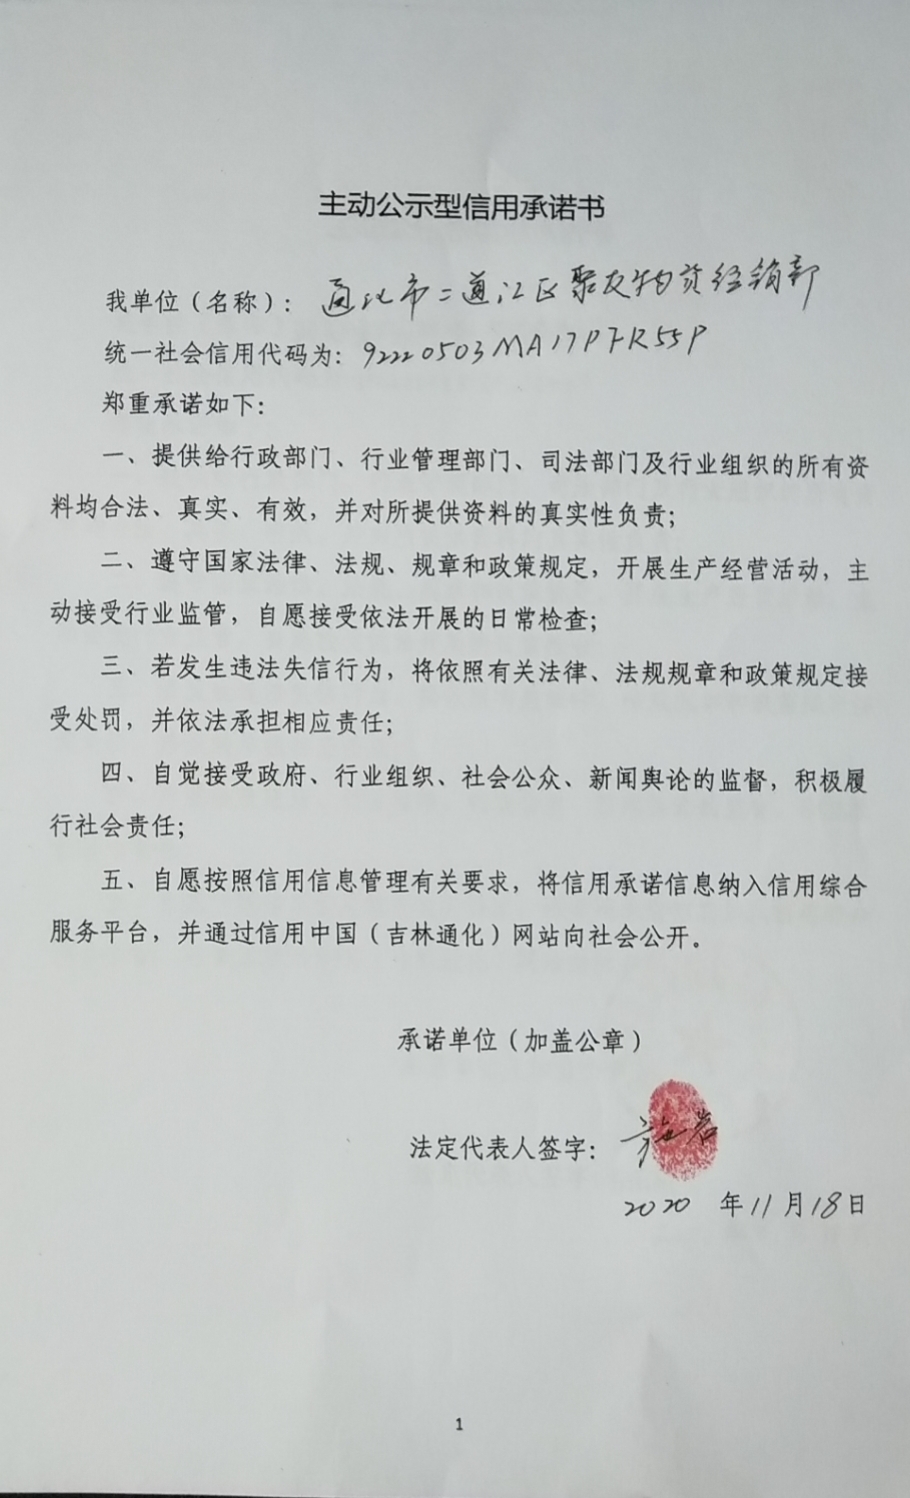 主动公示型信用承诺书
我单位（名称）：通化市二道江区聚友物资经销部
统一社会信用代码为：92220503MA17P7R55P
郑重承诺如下：
一、提供给行政部门、行业管理部门、司法部门及行业组织的所有资
料均合法、真实、有效，并对所提供资料的真实性负责；
二、遵守国家法律、法规、规章和政策规定，开展生产经营活动，主
动接受行业监管，自愿接受依法开展的日常检查；
三、若发生违法失信行为，将依照有关法律、法规规章和政策规定接
受处罚，并依法承担相应责任；
四、自觉接受政府、行业组织、社会公众、新闻舆论的监督，积极履
行社会责任；
五、自愿按照信用信息管理有关要求，将信用承诺信息纳入信用综合
服务平台，并通过信用中国（吉林通化）网站向社会公开。
承诺单位（加盖公章）
法定代表人签字：
2020 年11月18日
1